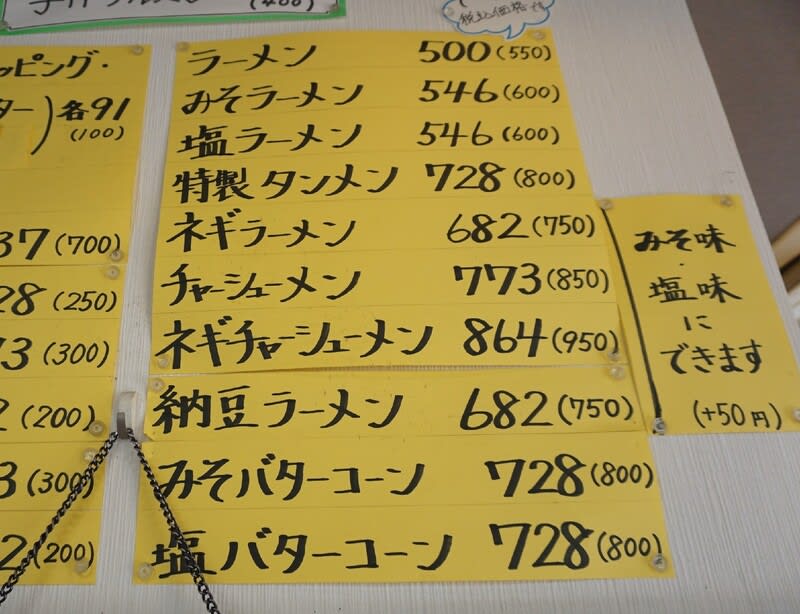 (400)
税込価格です
ッピング・
ター) 各91
(100)
37(700)
28(250)
3(300)
2(200)
3(300)
2(200)
ラーメン 500(550)
みそラーメン 546(600)
塩ラーメン 546(600)
特製タンメン 728(800)
ネギラーメン 682(750)
チャーシューメン 773(850)
ネギチャーシューメン 864(950)
納豆ラーメン 682(750)
みそバターコーン 728(800)
塩バターコーン 728(800)
みそ味
・
塩味
に
できます
(+50円)